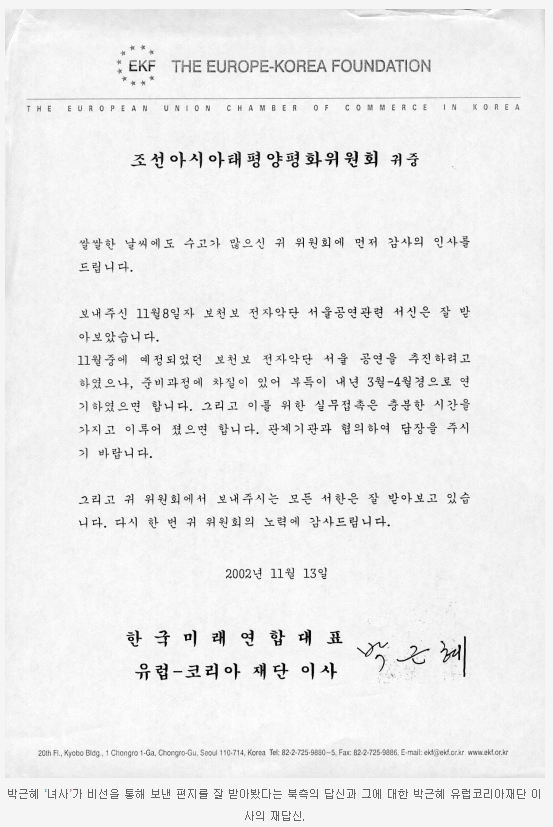 EKF THE EUROPE-KOREA FOUNDATION
THE EUROPEAN UNION CHAMBER OF COMMERCE IN KOREA
조선아시아태평양평화위원회 귀중
쌀쌀한 날씨에도 수고가 많으신 귀 위원회에 먼저 감사의 인사를
드립니다.
보내주신 11월8일자 보천보 전자악단 서울공연관련 서신은 잘 받
아보았습니다.
11월중에 예정되었던 보천보 전자악단 서울 공연을 추진하려고
하였으나, 준비과정에 차질이 있어 부득이 내년 3월-4월경으로 연
기하였으면 합니다. 그리고 이를 위한 실무접촉은 충분한 시간을
가지고 이루어 졌으면 합니다. 관계기관과 협의하여 답장을 주시
기 바랍니다.
그리고 귀 위원회에서 보내주시는 모든 서한은 잘 받아보고 있습
니다. 다시 한 번 귀 위원회의 노력에 감사드립니다.
2002년 11월 13일
한국미래연합대표
유럽-코리아 재단 이사 박근혜
20th Fl., Kyobo Bldg., 1 Chongro 1-Ga, Chongro-Gu, Seoul 110-714, Korea Tel: 82-2-725-9880~5, Fax: 82-2-725-9886, E-mail: ekf@ekf.or.kr www.ekf.or.kr
박근혜 '녀사'가 비선을 통해 보낸 편지를 잘 받아봤다는 북측의 답신과 그에 대한 박근혜 유럽코리아재단 이
사의 재답신.